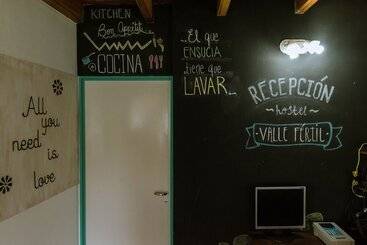 KITCHEN
Bon Appetit
COCINA
EL que
ENSUCIA
tiene que
LAVAR.
RECEPCIÓN
hostel
VALLE FÉRTIL
All
you
need
is
love